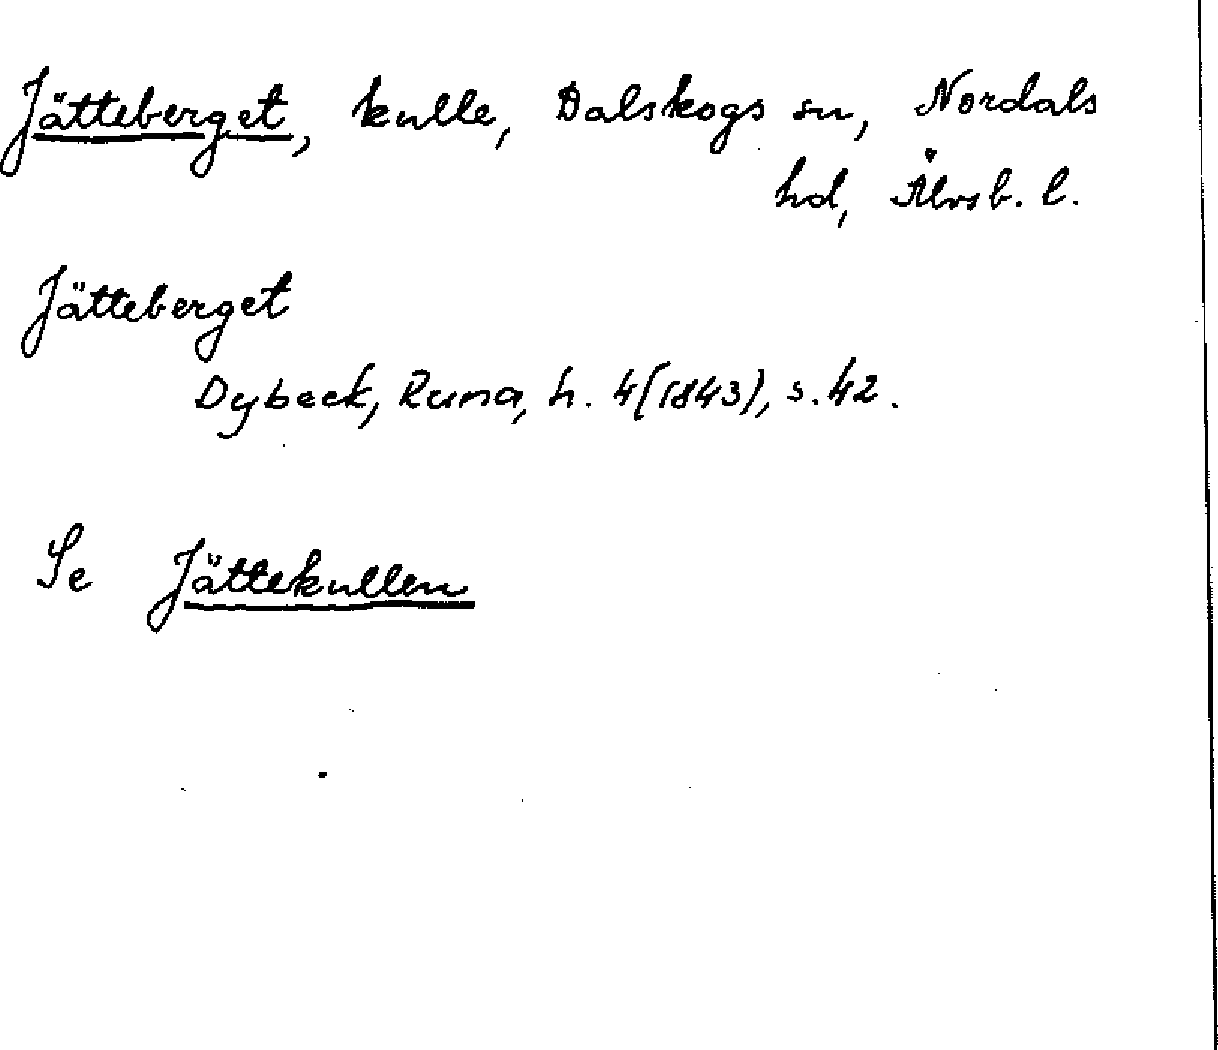 Jätteberget, kulle, Dalskogs sn, Nordals
hd, Älvsb. l.
Jätteberget
Dybeck, Runa, h. 4(1843), s. 42.
Se Jättekullen